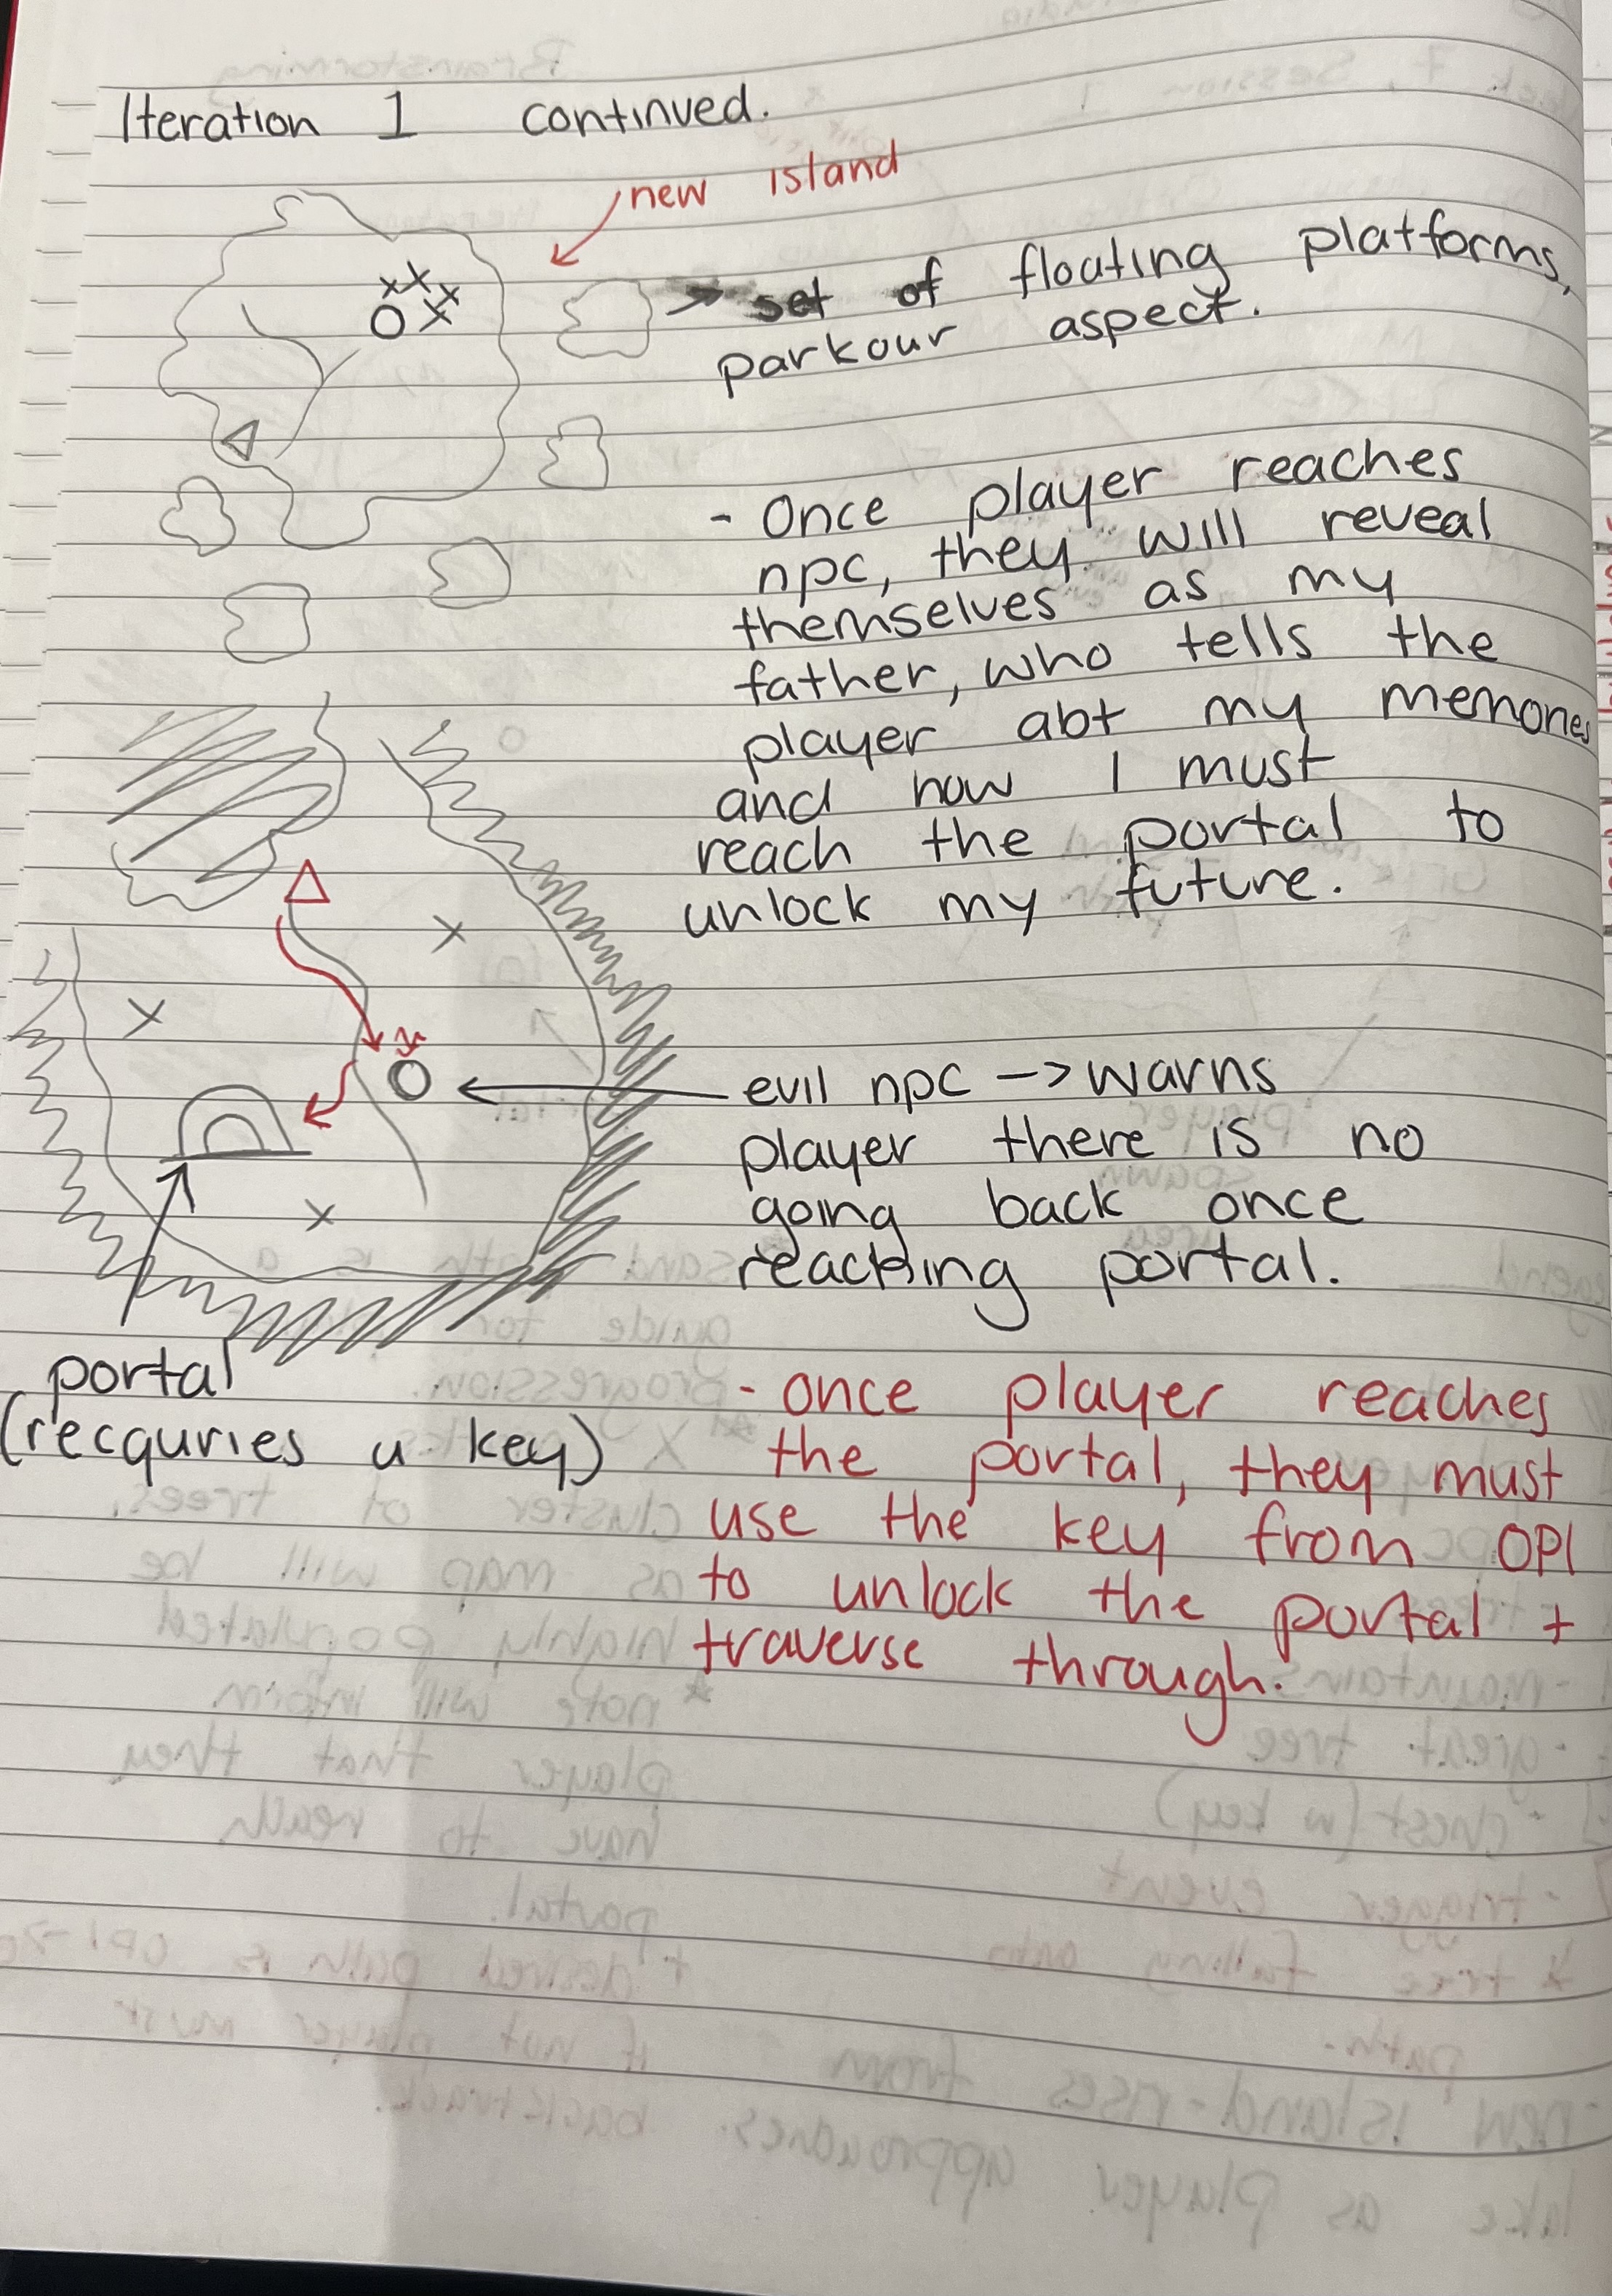 Iteration 1 continued.
new island
→ set of floating platforms,
parkour aspect.
- Once player reaches
npc, they will reveal
themselves as my
father, who tells the
player abt my memories
and how I must
reach the portal to
unlock my future.
evil npc -> warns
player there is no
going back once
reaching portal.
portal
(recquries a key)
- once player reaches
the portal, they must
use the key from OP1
to unlock the portal +
traverse through.